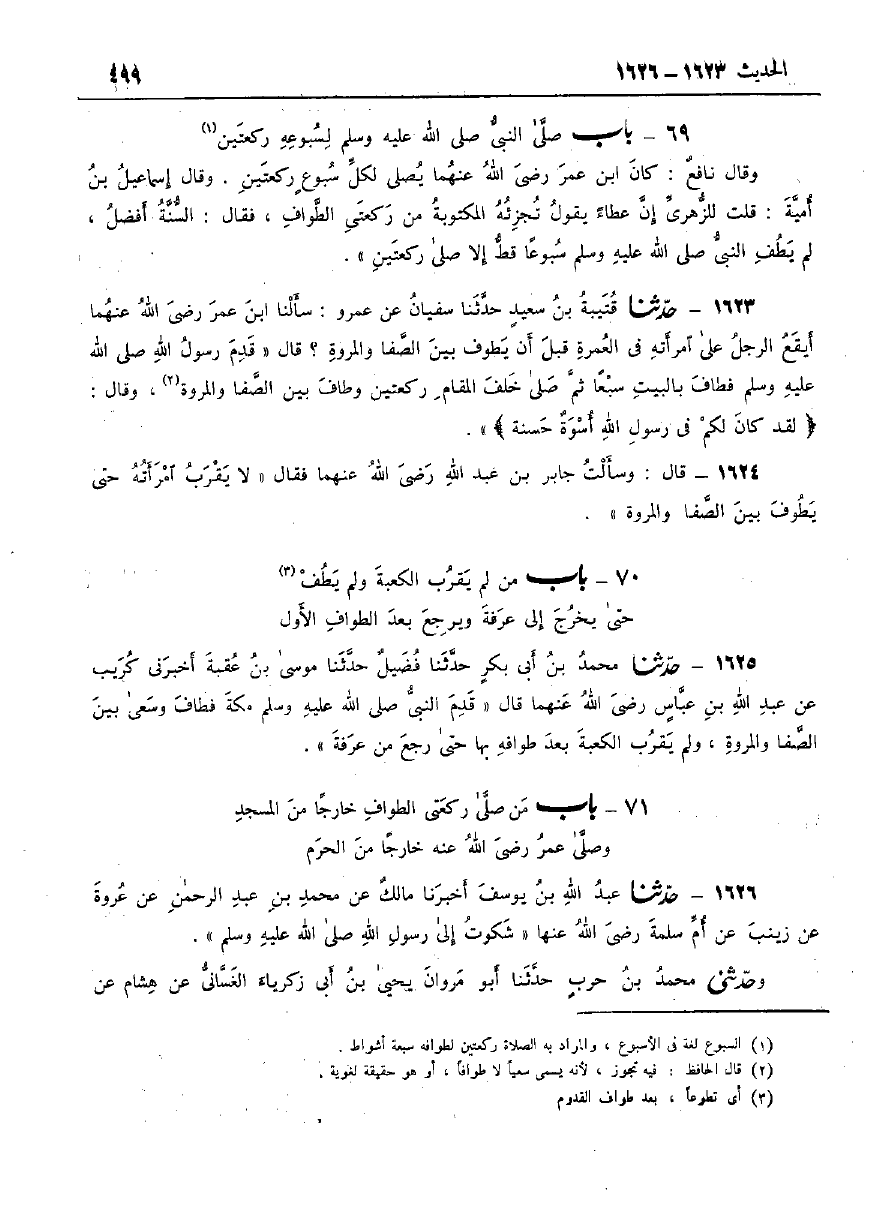 الحديث ١٦٢٣ – ١٦٢٦ ٤٩٩
٦٩ – باب صلَّىٰ النبيُّ صلى الله عليه وسلم لِسُبوعِهِ ركعتَين(١)
وقال نافعٌ : كانَ ابن عمرَ رضىَ اللهُ عنهُما يُصلى لكلِّ سُبوعٍ ركعتَينِ . وقال إسماعيلُ بنُ
أُميَّةَ : قلت للزُّهرىِّ إنَّ عطاءً يقولُ تُجزِئهُ المكتوبةُ من رَكعتَىِ الطَّوافِ ، فقال : السُّنَّةُ أفضلُ ،
لم يَطُفِ النبيُّ صلى الله عليهِ وسلم سُبوعًا قطُّ إلا صلىٰ ركعتَينِ » .
١٦٢٣ – حدّثنا قُتَيبةُ بنُ سعيدٍ حدَّثَنا سفيانُ عن عمرو : سألْنا ابنَ عمرَ رضىَ اللهُ عنهُما
أيقَعُ الرجلُ علىٰ آمرأتهِ فى العُمرةِ قبلَ أن يَطوف بينَ الصَّفا والمروةِ ؟ قال « قَدِمَ رسولُ اللهِ صلى الله
عليهِ وسلم فطافَ بالبيتِ سبْعًا ثمَّ صَلىٰ خَلفَ المقامِ ركعتين وطافَ بين الصَّفا والمروة(٢) ، وقال :
﴿ لقد كانَ لكمْ فى رسولِ اللهِ أُسْوَةٌ حَسنة ﴾ » .
١٦٢٤ – قال : وسألْتُ جابر بن عبد اللهِ رَضىَ اللهُ عنهما فقال « لا يَقْرَبُ آمْرَأتُهُ حتى
يَطُوفَ بينَ الصَّفا والمروة » .
٧٠ – باب من لم يَقرُب الكعبةَ ولم يَطُفْ(٣)
حتىٰ يخرُجَ إلى عرفةَ ويرجِعَ بعدَ الطوافِ الأول
١٦٢٥ – حدّثنا محمدُ بنُ أبى بكرٍ حدَّثَنا فُضَيلٌ حدَّثَنا موسىٰ بنُ عُقبةَ أخبرَنى كُرَيب
عن عبدِ اللهِ بنِ عبَّاسٍ رضىَ اللهُ عَنهما قال « قَدِمَ النبيُّ صلى الله عليهِ وسلم مكةَ فطافَ وسَعىٰ بينَ
الصَّفا والمروةِ ، ولم يَقرُب الكعبةَ بعدَ طوافهِ بها حتىٰ رجعَ من عرفةَ » .
٧١ – باب مَن صلَّىٰ ركعَتى الطوافِ خارجًا منَ المسجدِ
وصلَّىٰ عمرُ رضىَ اللهُ عنه خارجًا منَ الحرَم
١٦٢٦ – حدّثنا عبدُ اللهِ بنُ يوسفَ أخبرَنا مالكٌ عن محمدِ بنِ عبدِ الرحمٰنِ عن عُروةَ
عن زينبَ عن أُمِّ سلمةَ رضىَ اللهُ عنها « شَكوتُ إلىٰ رسولِ اللهِ صلىٰ الله عليهِ وسلم » .
وحدّثنى محمدُ بنُ حربٍ حدَّثَنا أبو مَروانَ يحيىٰ بنُ أبى زكرياءَ الغَسَّانىُّ عن هِشام عن
(١) السبوع لغة فى الأسبوع ، والمراد به الصلاة ركعتين لطوافه سبعة أشواط .
(٢) قال الحافظ : فيه تجوز ، لأنه يسمى سعياً لا طوافاً ، أو هو حقيقة لغوية .
(٣) أى تطوعاً ، بعد طواف القدوم